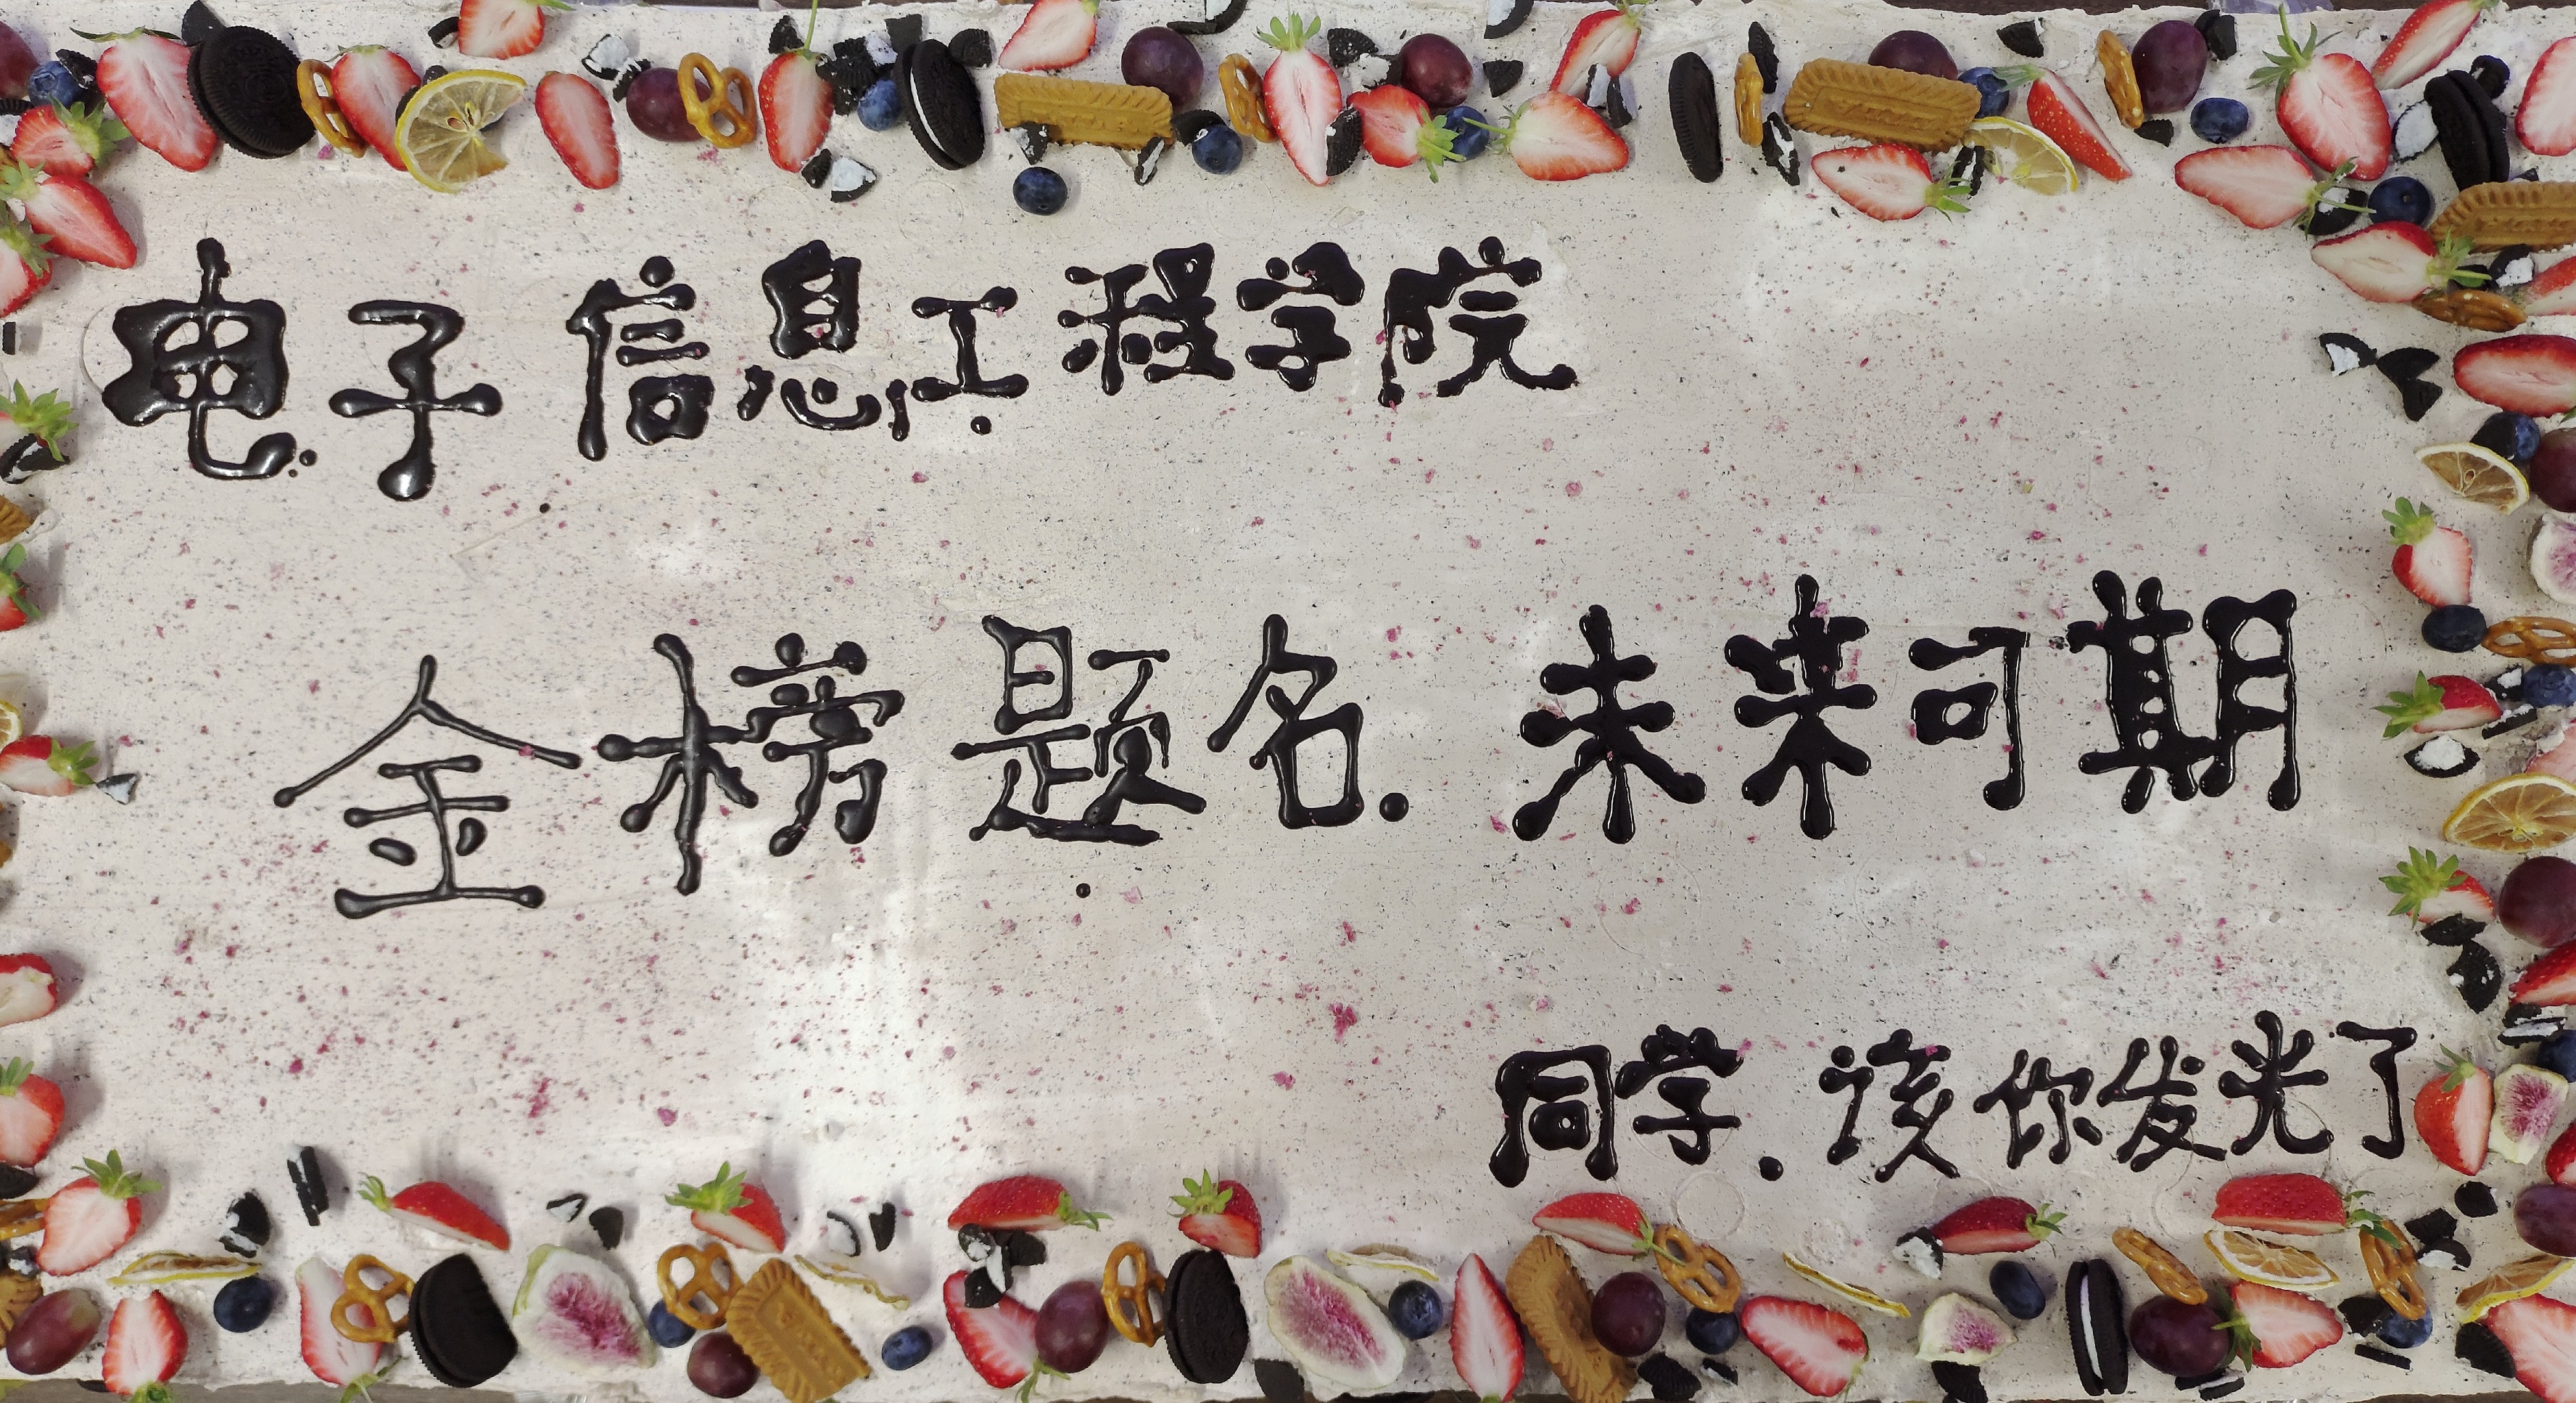 电子信息工程学院
金榜题名.未来可期
同学.该你发光了